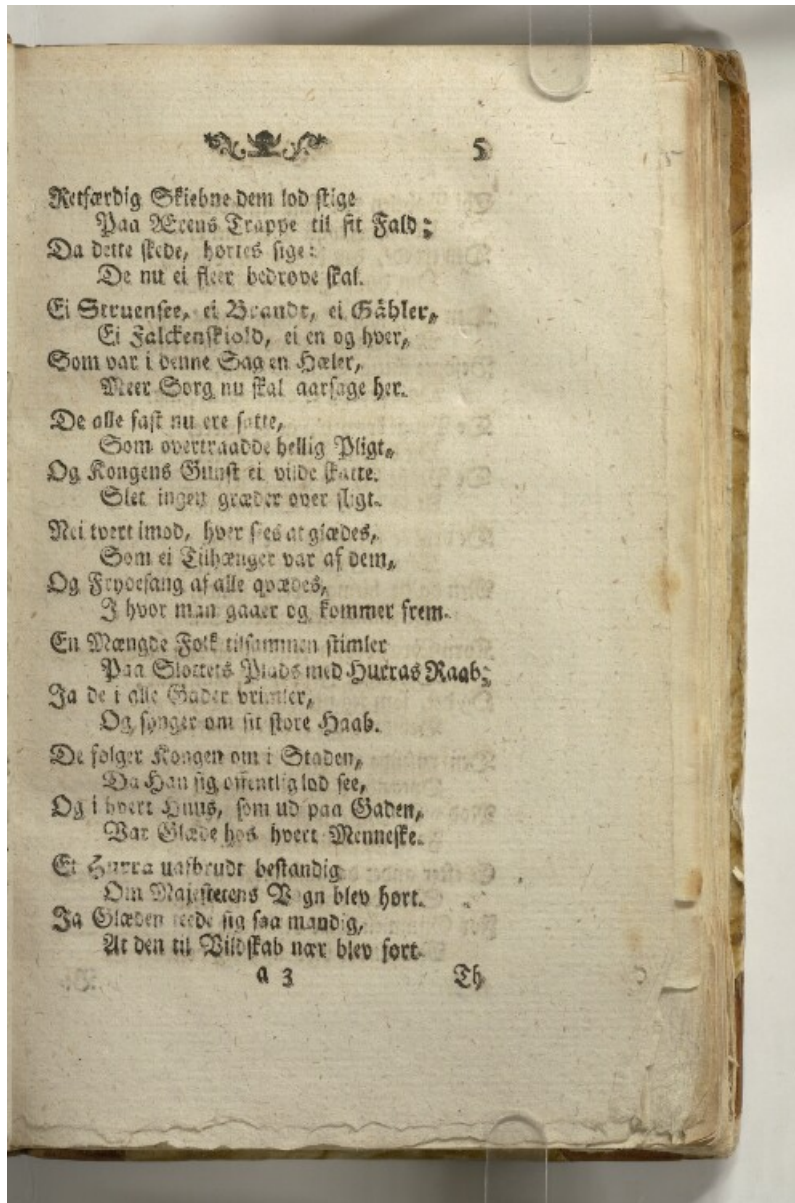 5
Retfærdig Skiebne dem lod stige
Paa Ærens Trappe til sit Fald;
Da dette skede, hørtes sige:
De nu ei fleer bedrøve skal.
Ei Struensee, ei Brandt, ei Gåhler,
Ei Falckenskiold, ei en og hver,
Som var i denne Sag en Hæler,
Meer Sorg nu skal aarsage her.
De alle fast nu ere satte,
Som overtraadde hellig Pligt,
Og Kongens Gunst ei vilde skatte.
Slet ingen græder over sligt.
Nei tvert imod, hver sees at glædes,
Som ei Tilhænger var af dem,
Og Frydesang af alle qvædes,
I hvor man gaaer og kommer frem.
En Mængde Folk tilsammen stimler
Paa Slottets Plads med Hurras Raab;
Ja de i alle Gader vrimler,
Og synger om sit store Haab.
De følger Kongen om i Staden,
Da Han sig offentlig lod see,
Og i hvert Huus, som ud paa Gaden,
Var Glæde hos hvert Menneske.
Et Hurra uafbrudt bestandig
Om Majestetens Vogn blev hørt.
Ja Glæden teede sig saa mandig,
At den til Vildskab nær blev ført.
a 3 Th